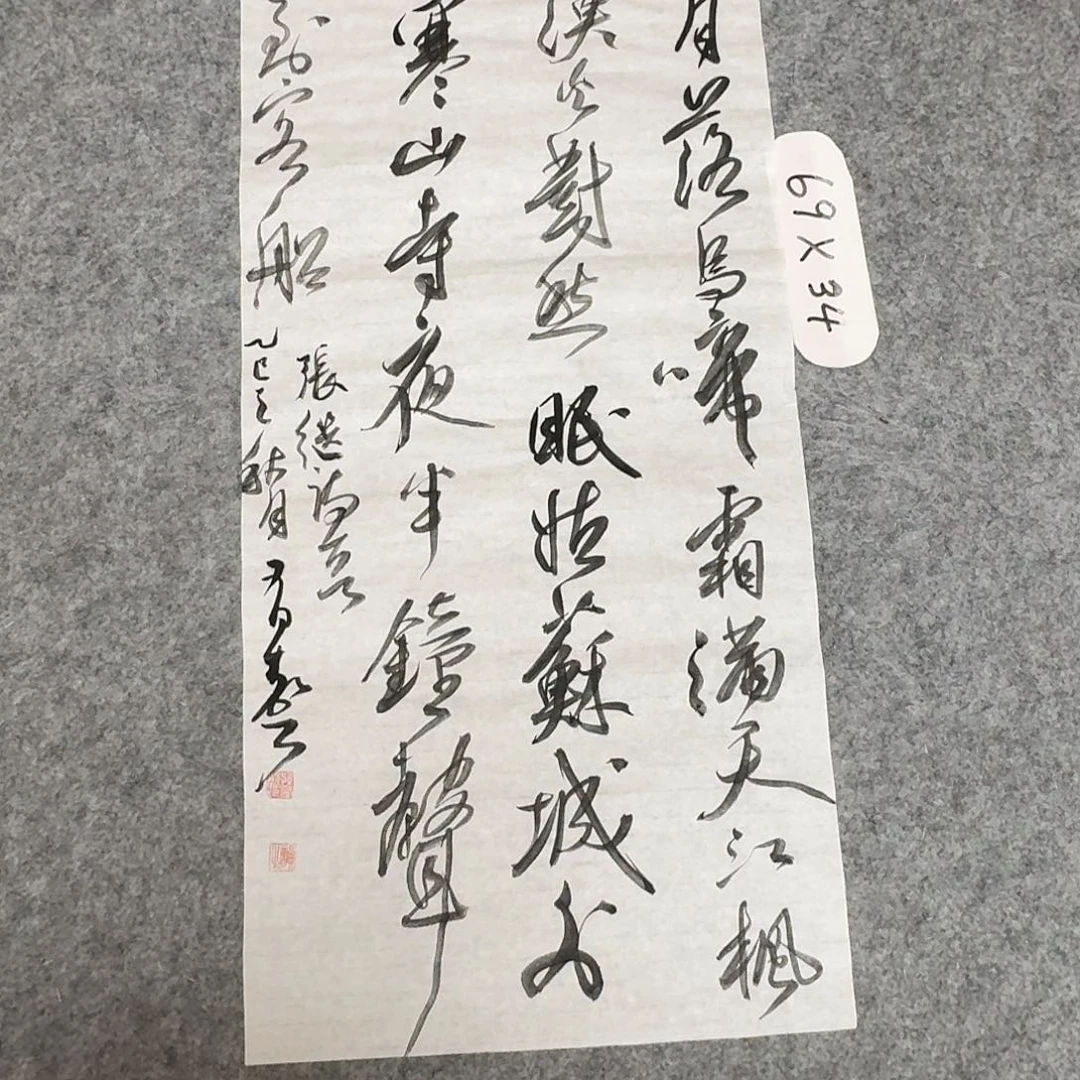 月落烏啼霜滿天江楓
漁火對愁眠姑蘇城外
寒山寺夜半鐘聲
到客船
張继詩意
乙巳之秋月
69×34